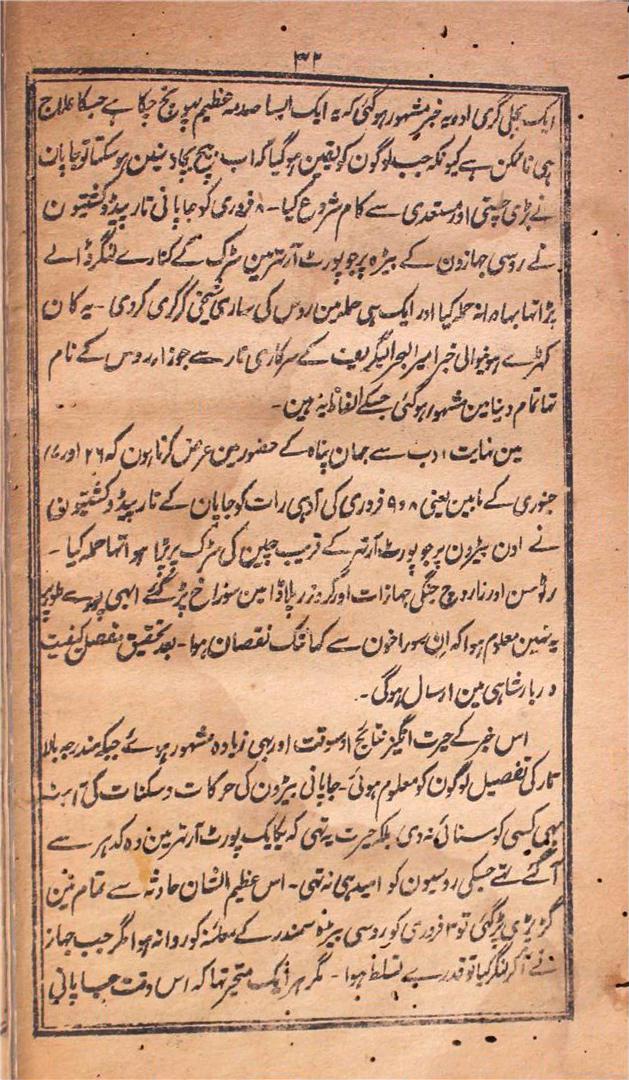 ۳۲
ایک بجلی گری اور یہ خبر مشہور ہوگئی کہ یہ ایک ایسا صدمہ عظیم پہونچ چکا ہے جسکا علاج
ہی ناممکن ہے کیونکہ جب لوگون کو یقین ہوگیا کہ اب بیچ بچاؤ نہین ہوسکتا تو جاپان
نے بڑی چستی اور مستعدی سے کام شروع کیا - ۸ فروری کو جاپانی تارپیڈو کشتیون
نے روسی جہازون کے بیڑہ پر جو پورٹ آرتھر مین سڑک کے کنارے لنگر ڈالے
پڑا تھا بہادرانہ حملہ کیا اور ایک ہی حملہ مین روس کی ساری شیخی کرکری کردی - یہ کان
کھڑے ہونیوالی خبر امیر البحر الیگزیف کے سرکاری تار سے جو زار روس کے نام
تھا تمام دنیا مین مشہور ہوگئی جسکے الفاظ یہ ہین -
مین نہایت ادب سے جہان پناہ کے حضور مین عرض کرتا ہون کہ ۲۶ اور ۲۷
جنوری کے مابین یعنی ۸ و ۹ فروری کی آدہی رات کو جاپان کے تارپیڈو کشتیون
نے اون بیڑون پر جو پورٹ آرتھر کے قریب چین کی سڑک پر پڑا ہوا تھا حملہ کیا -
رٹوسن اور زاروچ جنگی جہازات اور کروزر پلاڈا مین سوراخ پڑ گئے ابھی پورے طور پر
یہ نہین معلوم ہوا کہ ان سوراخون سے کہانتک نقصان ہوا - بعد تحقیق مفصل کیفیت
دربار شاہی مین ارسال ہوگی -
اس خبر کے حیرت انگیز نتائج اوسوقت اور بھی زیادہ مشہور ہوئے جبکہ مندرجہ بالا
تار کی تفصیل لوگون کو معلوم ہوئی - جاپانی بیڑون کی حرکات و سکنات کی آہٹ
بھی کسی کو سنائی نہ دی بلکہ حیرت یہ تھی کہ یکایک پورٹ آرتھر مین وہ کدہر سے
آگئے تھے جسکی روسیون کو امید ہی نہ تھی - اس عظیم الشان حادثہ سے تمام مین
گڑبڑی پڑگئی تو ۳ فروری کو روسی بیڑہ سمندر کے معائنہ کو روانہ ہوا مگر جب جہاز
نے آکر لنگر کیا تو قدرے تسلط ہوا - مگر ہر ایک متحیر تھا کہ اس وقت جاپانی